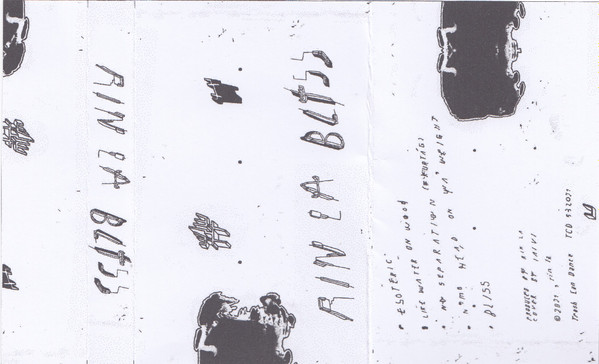 RIN LA BLISS
RIN LA BLISS
ESOTERIC
LIKE WATER ON WOOD
NO SEPARATION
NUMB HEAD ON YA' WEIGHT
BLISS
PRODUCED BY RIN LA
COVER BY
©2021, rin la
Trash Can Dance TCD